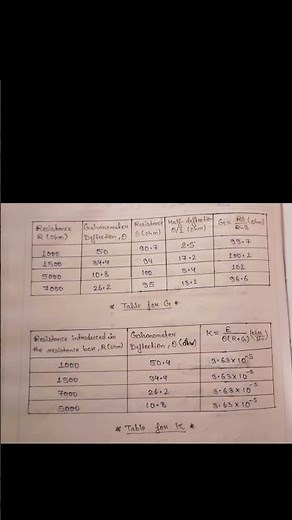 Resistance R (ohm) | Galvanometer Deflection, θ | Resistance S (ohm) | Half-deflection θ/2 (ohm) | G = RS/R-S (ohm)
1000 | 50 | 90.7 | 2.5 | 99.7
1500 | 34.4 | 94 | 17.2 | 100.2
5000 | 10.8 | 100 | 5.4 | 102
7000 | 26.2 | 95 | 13.1 | 96.6
* Table for G *
Resistance introduced in the resistance box, R (ohm) | Galvanometer Deflection, θ (div) | K = E/θ(R+G)
1000 | 50.4 | 3.63 x 10⁻⁵
1500 | 34.4 | 3.63 x 10⁻⁵
7000 | 26.2 | 3.63 x 10⁻⁵
5000 | 10.8 | 3.63 x 10⁻⁵
* Table for K *